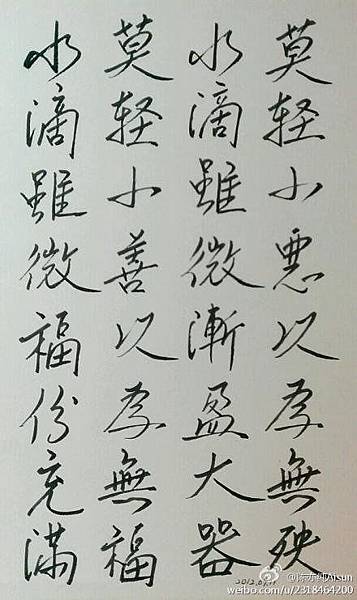 莫轻小恶以为無殃
水滴雖微漸盈大器
莫轻小善以为無福
水滴雖微福份充滿
2012.01.11
@陈亦纯Aisun
weibo.com/u/2318464200